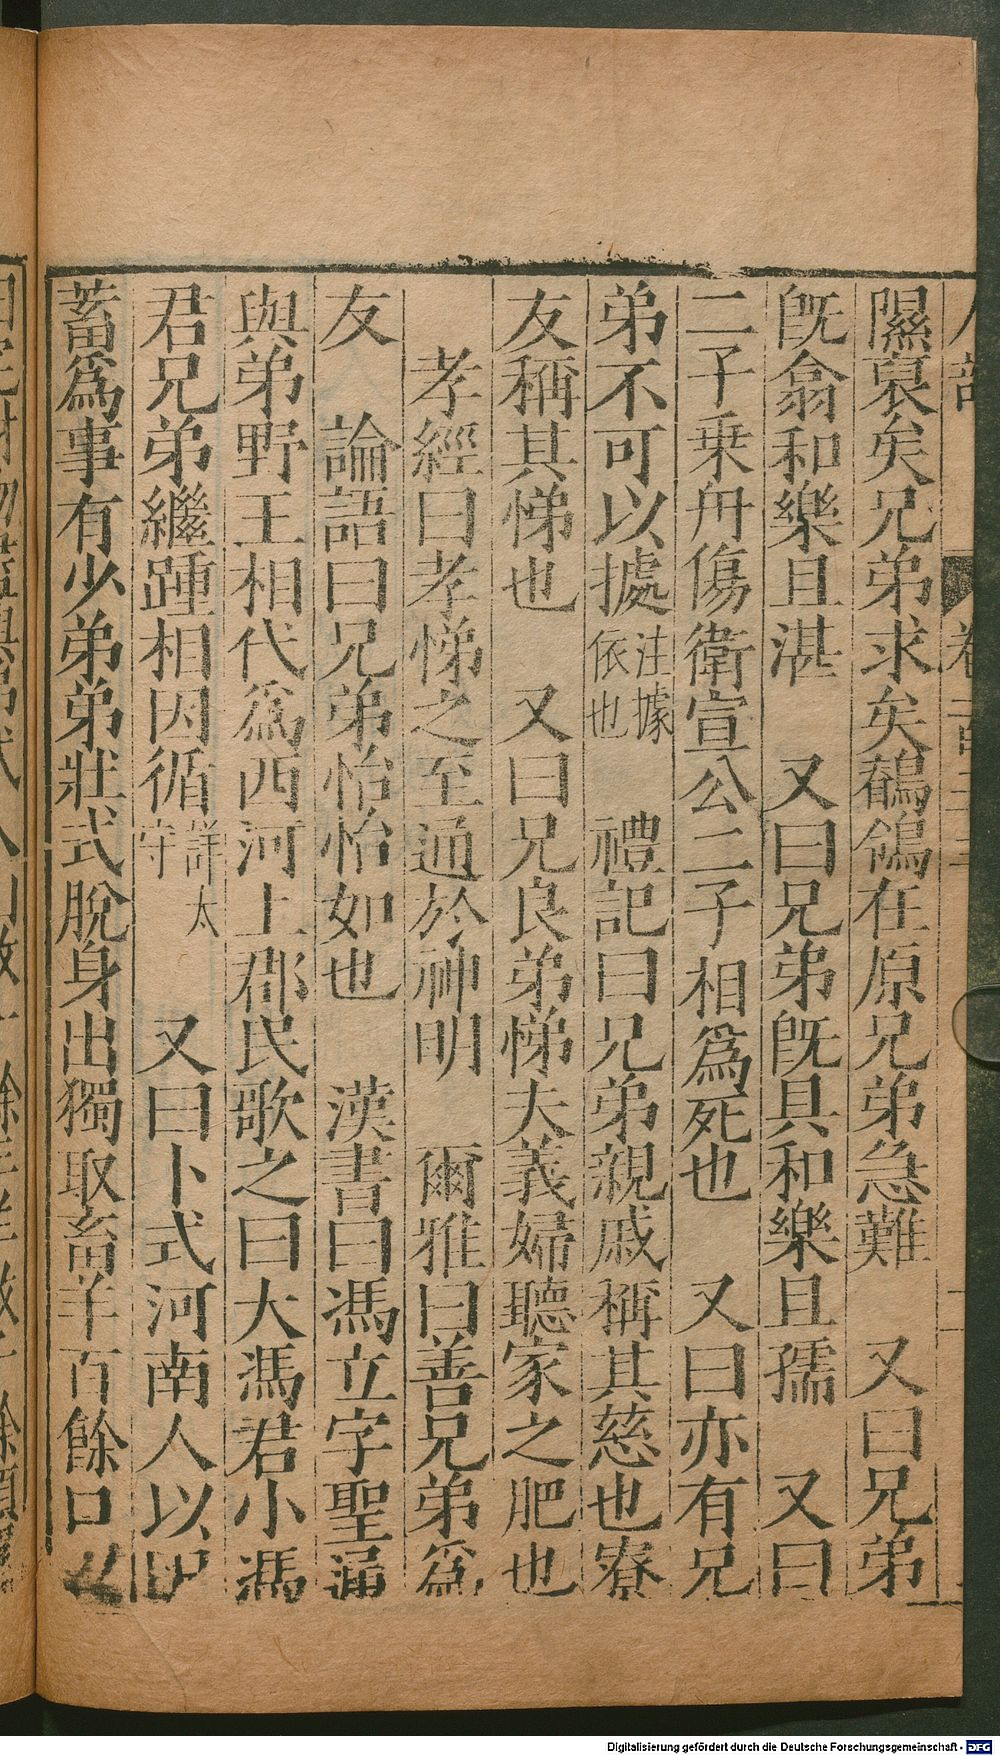 隰裒矣兄弟求矣鶺鴒在原兄弟急難　又曰兄弟
旣翕和樂且湛　又曰兄弟旣具和樂且孺　又曰
二子乗舟傷衛宣公二子相爲死也　又曰亦有兄
弟不可以據注據依也　禮記曰兄弟親戚稱其慈也寮
友稱其悌也　又曰兄良弟悌夫義婦聽家之肥也
孝經曰孝悌之至通於神明　爾雅曰善兄弟爲
友　論語曰兄弟怡怡如也　漢書曰馮立字聖通
與弟野王相代爲西河上郡民歌之曰大馮君小馮
君兄弟繼踵相因循詳太守　又曰卜式河南人以
蓄爲事有少弟弟壯式脫身出獨取畜羊百餘口
Digitalisierung gefördert durch die Deutsche Forschungsgemeinschaft - DFG